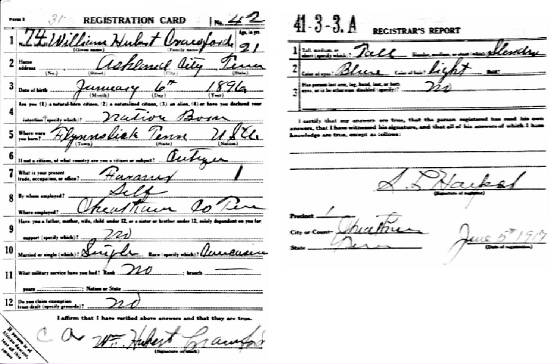 Form 1 31 REGISTRATION CARD No. 42
1 74 William Hubert Crawford Age, in yrs. 21
(Given name) (Family name)
2 Home address Ashland City Tenn
(No.) (Street) (City) (State)
3 Date of birth January 6th 1896
(Month) (Day) (Year)
4 Are you (1) a natural-born citizen, (2) a naturalized citizen, (3) an alien, (4) or have you declared your
intention (specify which)? Native Born
5 Where were you born? Flynnslick Tenn U.S.A.
(Town) (State) (Nation)
6 If not a citizen, of what country are you a citizen or subject? Citizen
7 What is your present trade, occupation, or office? Farmer 1
8 By whom employed? Self
Where employed? Cheatham Co Tenn
9 Have you a father, mother, wife, child under 12, or a sister or brother under 12, solely dependent on you for
support (specify which)? No
10 Married or single (which)? Single Race (specify which)? Caucasian
11 What military service have you had? Rank No ; branch
years ; Nation or State
12 Do you claim exemption from draft (specify grounds)? No
I affirm that I have verified above answers and that they are true.
Wm Hubert Crawford
(Signature or mark)
41-3-3. A REGISTRAR'S REPORT
1 Tall, medium, or short (specify which)? Tall Slender, medium, or stout (which)? Slender
2 Color of eyes? Blue Color of hair? Light Bald?
3 Has person lost arm, leg, hand, foot, or both eyes, or is he otherwise disabled (specify)? No
I certify that my answers are true, that the person registered has read his own
answers, that I have witnessed his signature, and that all of his answers of which I have
knowledge are true, except as follows:
(Signature of registrar)
Precinct 1
City or County Cheatham
State Tenn June 5th 1917
(Date of registration)